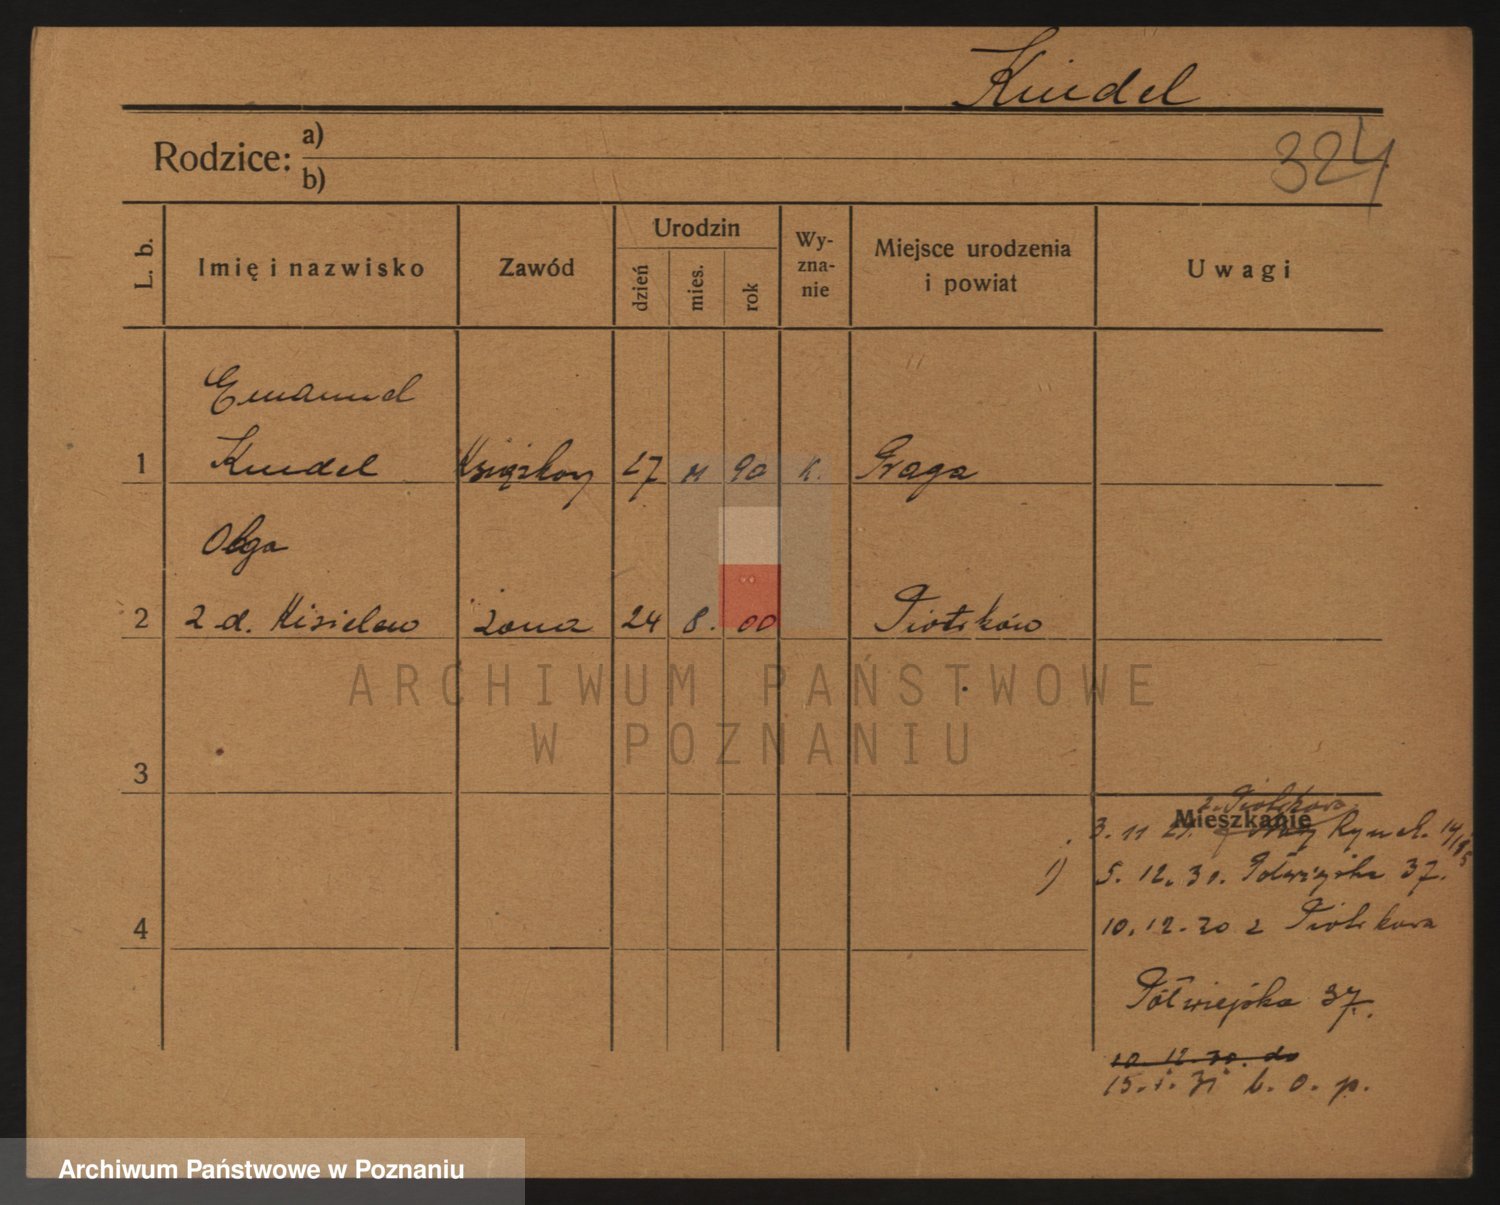 Kindel
324
Rodzice: a)
b)
L. b.
Imię i nazwisko
Zawód
Urodzin
dzień
mies.
rok
Wy-
zna-
nie
Miejsce urodzenia
i powiat
Uwagi
Emanuel
1 Kindel Książkowy 27 11 90 K. Praga
Olga
2 z d. Kisielew żona 24 8. 00 Piotrków
3
4
z Piotrkowa
Mieszkanie
3. 11 Rynek. 14/15
1) 5. 12. 30. Półwiejska 37.
10. 12. 30 z Piotrkowa
Półwiejska 37.
10. 12. 30. do
15. 1. 31 b. o. p.
ARCHIWUM PAŃSTWOWE
W POZNANIU
Archiwum Państwowe w Poznaniu